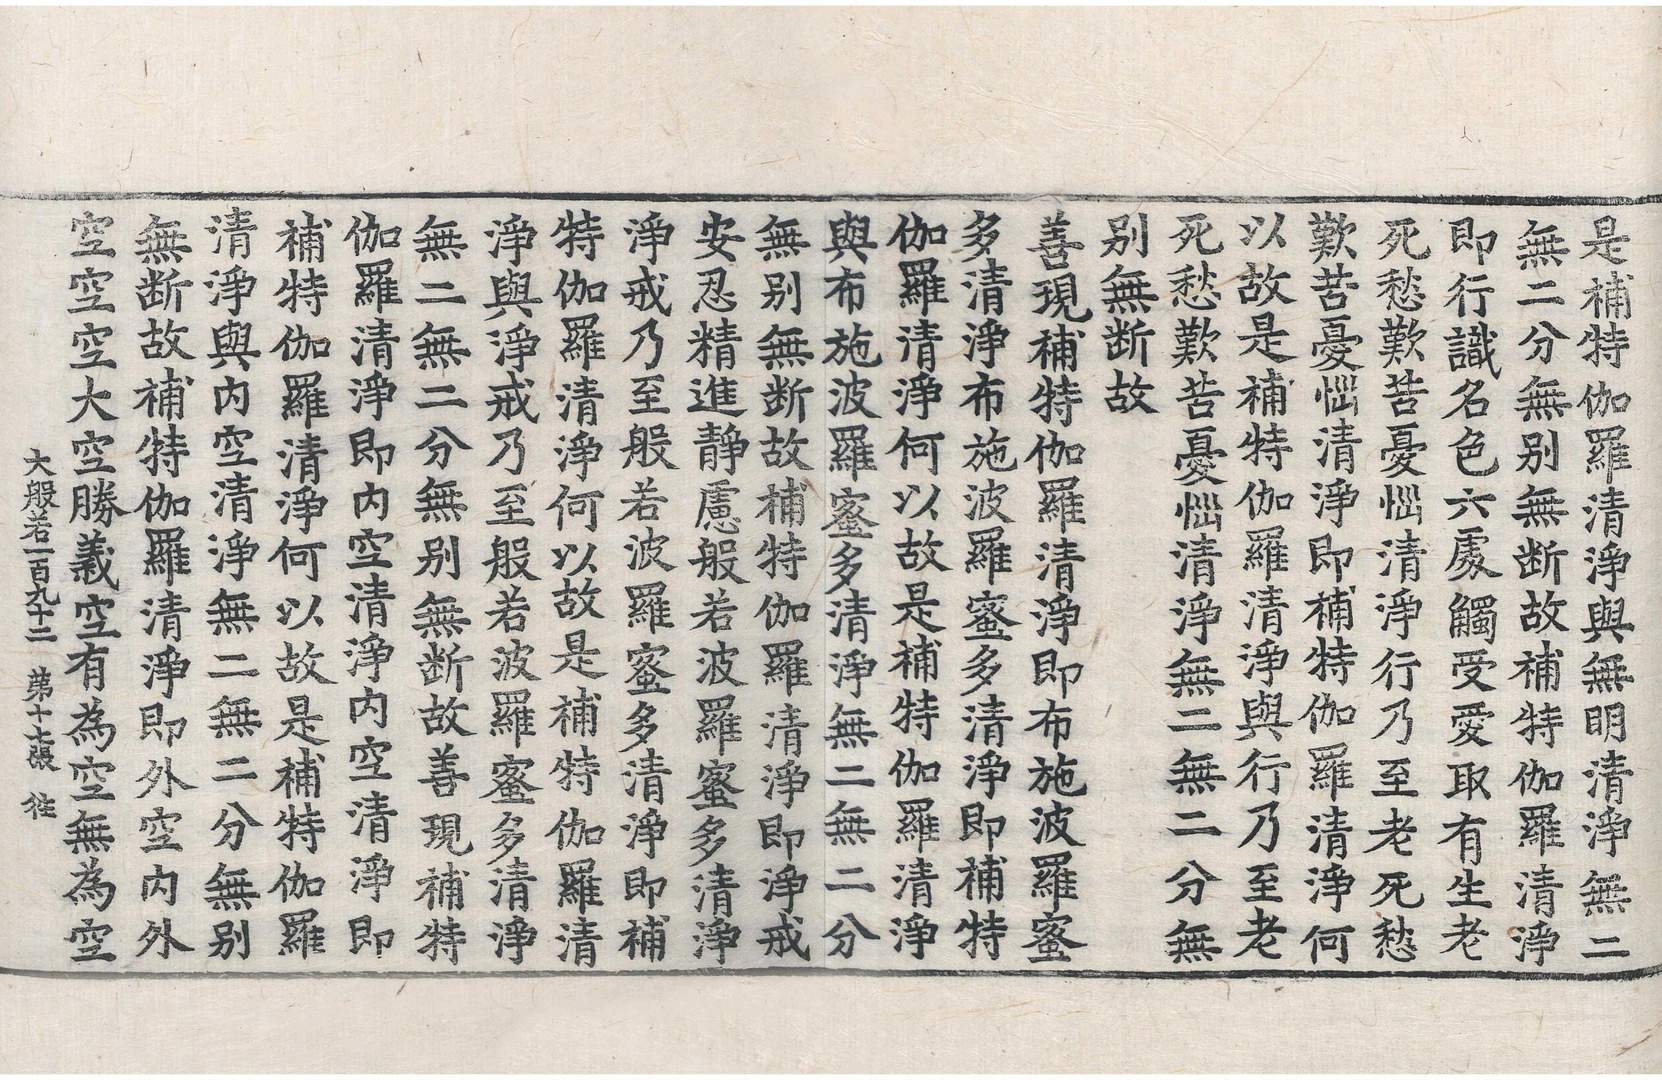 是補特伽羅清淨與無明清淨無二
無二分無別無斷故補特伽羅清淨
即行識名色六處觸受愛取有生老
死愁歎苦憂惱清淨行乃至老死愁
歎苦憂惱清淨即補特伽羅清淨何
以故是補特伽羅清淨與行乃至老
死愁歎苦憂惱清淨無二無二分無
別無斷故
善現補特伽羅清淨即布施波羅蜜
多清淨布施波羅蜜多清淨即補特
伽羅清淨何以故是補特伽羅清淨
與布施波羅蜜多清淨無二無二分
無別無斷故補特伽羅清淨即淨戒
安忍精進靜慮般若波羅蜜多清淨
淨戒乃至般若波羅蜜多清淨即補
特伽羅清淨何以故是補特伽羅清
淨與淨戒乃至般若波羅蜜多清淨
無二無二分無別無斷故善現補特
伽羅清淨即內空清淨內空清淨即
補特伽羅清淨何以故是補特伽羅
清淨與內空清淨無二無二分無別
無斷故補特伽羅清淨即外空內外
空空空大空勝義空有為空無為空
大般若一百九十二 第十七張